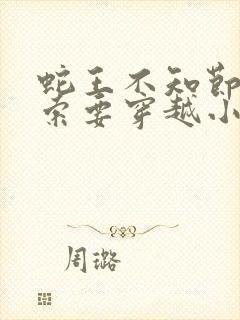 蛇王不知节
索要穿越小
周璐